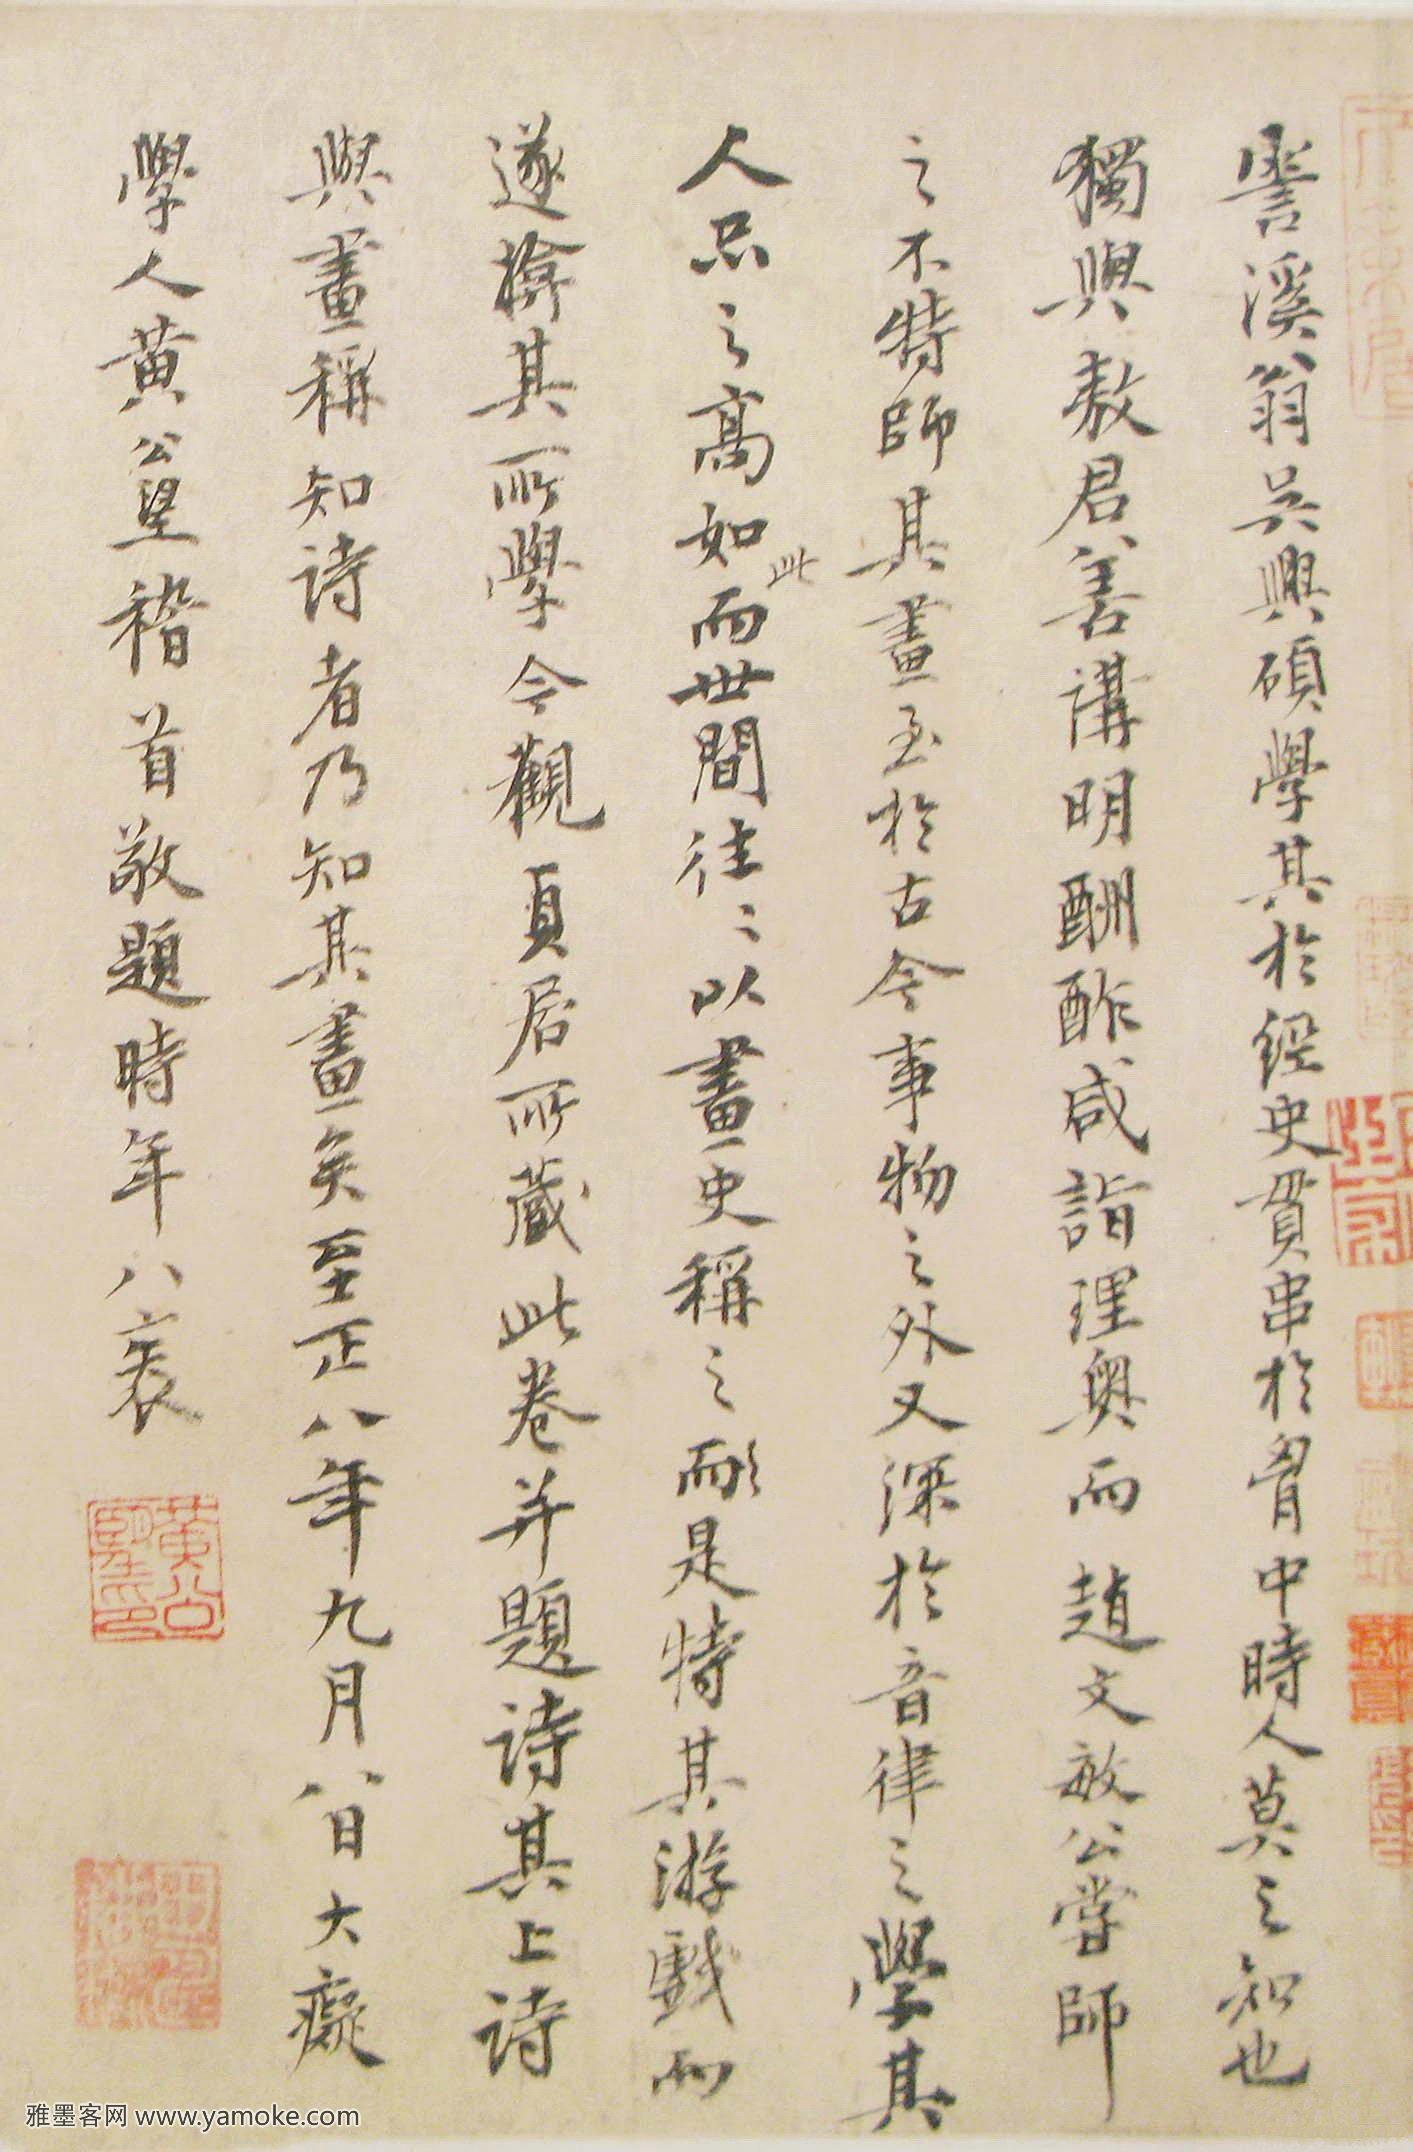 霅溪翁吳興碩學其於經史貫串於胷中時人莫之知也
獨與敖君善講明酬酢咸詣理奧而趙文敏公嘗師
之不特師其畫至於古今事物之外又深於音律之學其
人品之高如此而世間往〻以畫史稱之是特其游戲而
遂揜其所學今觀貞居所藏此卷并題詩其上詩
與畫稱知詩者乃知其畫矣至正八年九月八日大癡
學人黃公望稽首敬題時年八袠
黃公望印
雅墨客网 www.yamoke.com